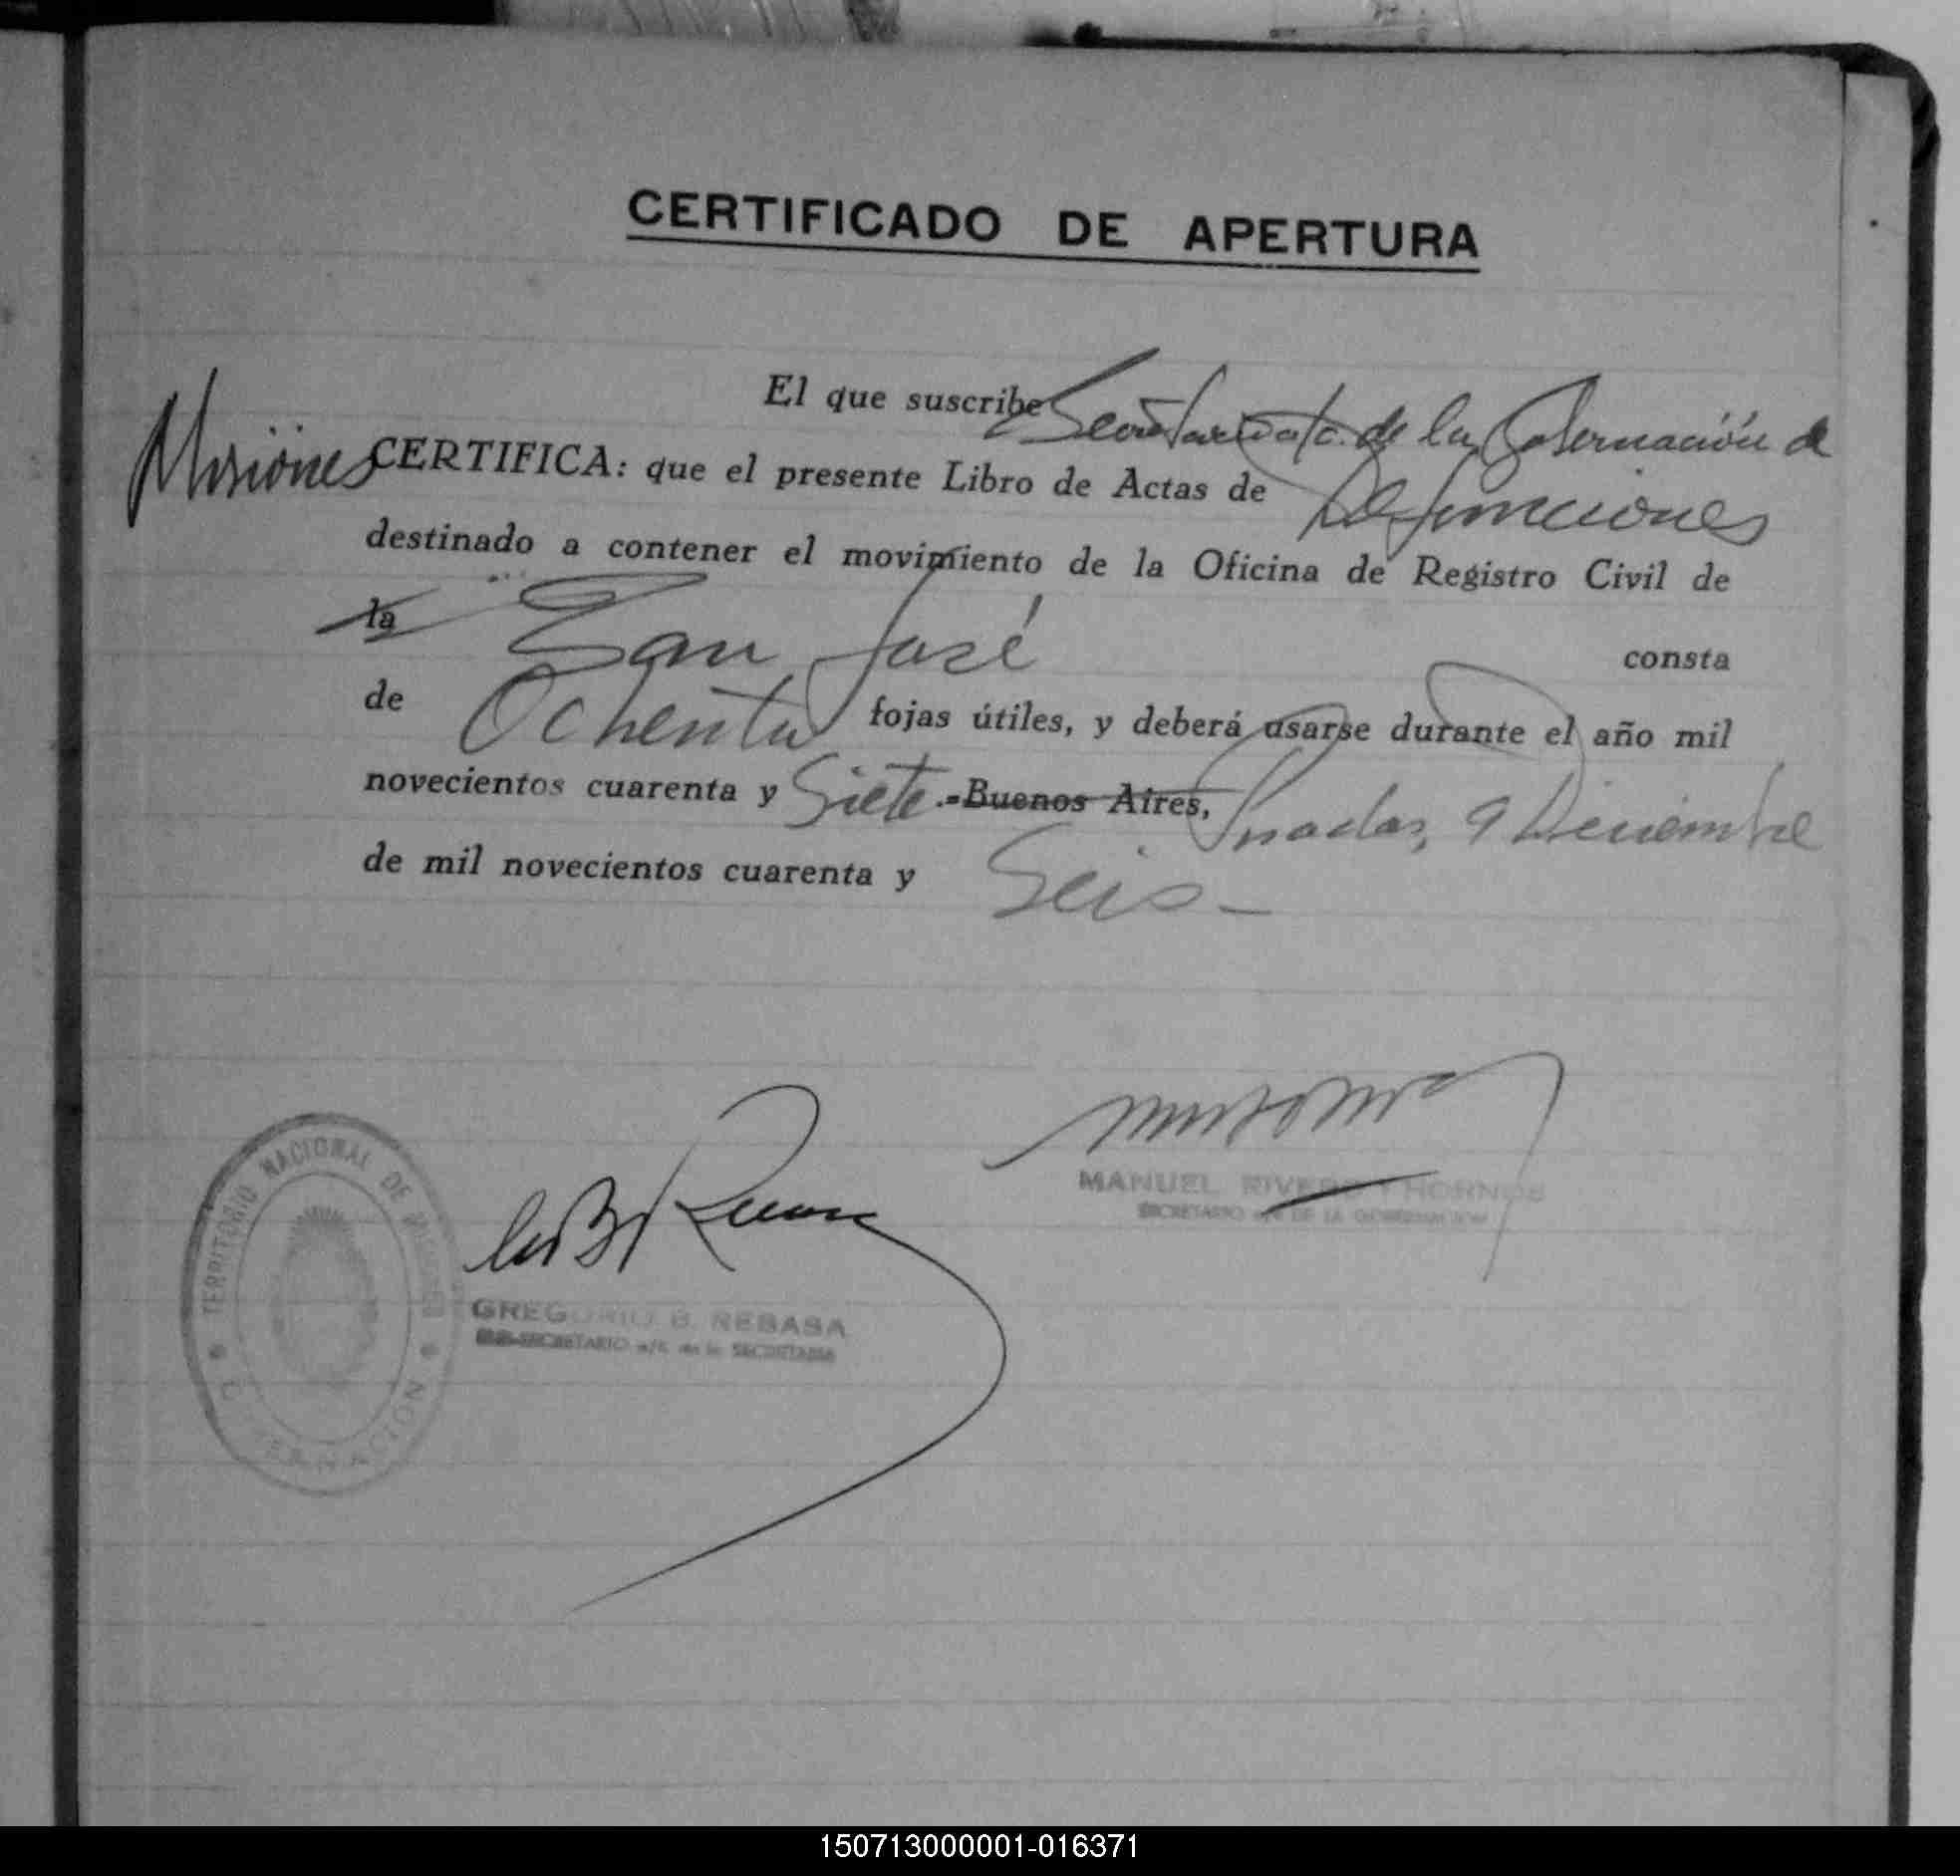 CERTIFICADO DE APERTURA
El que suscribe Secretario a/c. de la Gobernación de
Misiones CERTIFICA: que el presente Libro de Actas de Defunciones
destinado a contener el movimiento de la Oficina de Registro Civil de
la San José consta
de Ochenta fojas útiles, y deberá usarse durante el año mil
novecientos cuarenta y Siete.-Buenos Aires, Posadas, 9 Diciembre
de mil novecientos cuarenta y Seis-
MANUEL RIVERO Y HORNOS
SECRETARIO a/c DE LA GOBERNACION
TERRITORIO NACIONAL DE MISIONES
GOBERNACION
GREGORIO B. REBASA
SUB-SECRETARIO a/c de la SECRETARIA
150713000001-016371